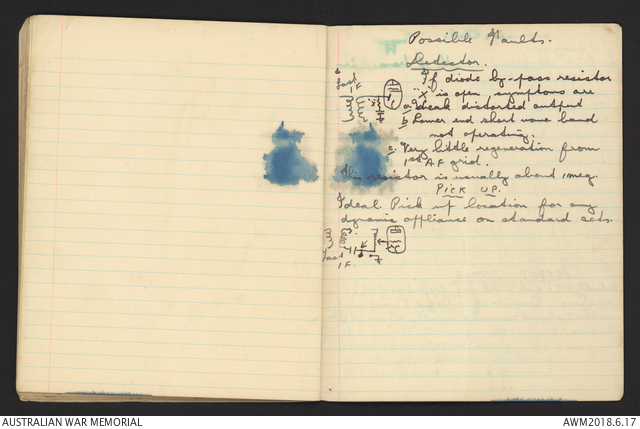 Possible Faults.
Detector.
If diode by-pass resistor
"X" is open, symptoms are
a Weak distorted output
b Lower end short wave band
not operating.
c. Very little regeneration from
1st AF grid.
This resistor is usually about 1 meg.
PICK UP.
Ideal Pick up location for any
dynamic appliance on standard sets.
Last
I F
Last
I F.
AUSTRALIAN WAR MEMORIAL
AWM2018.6.17